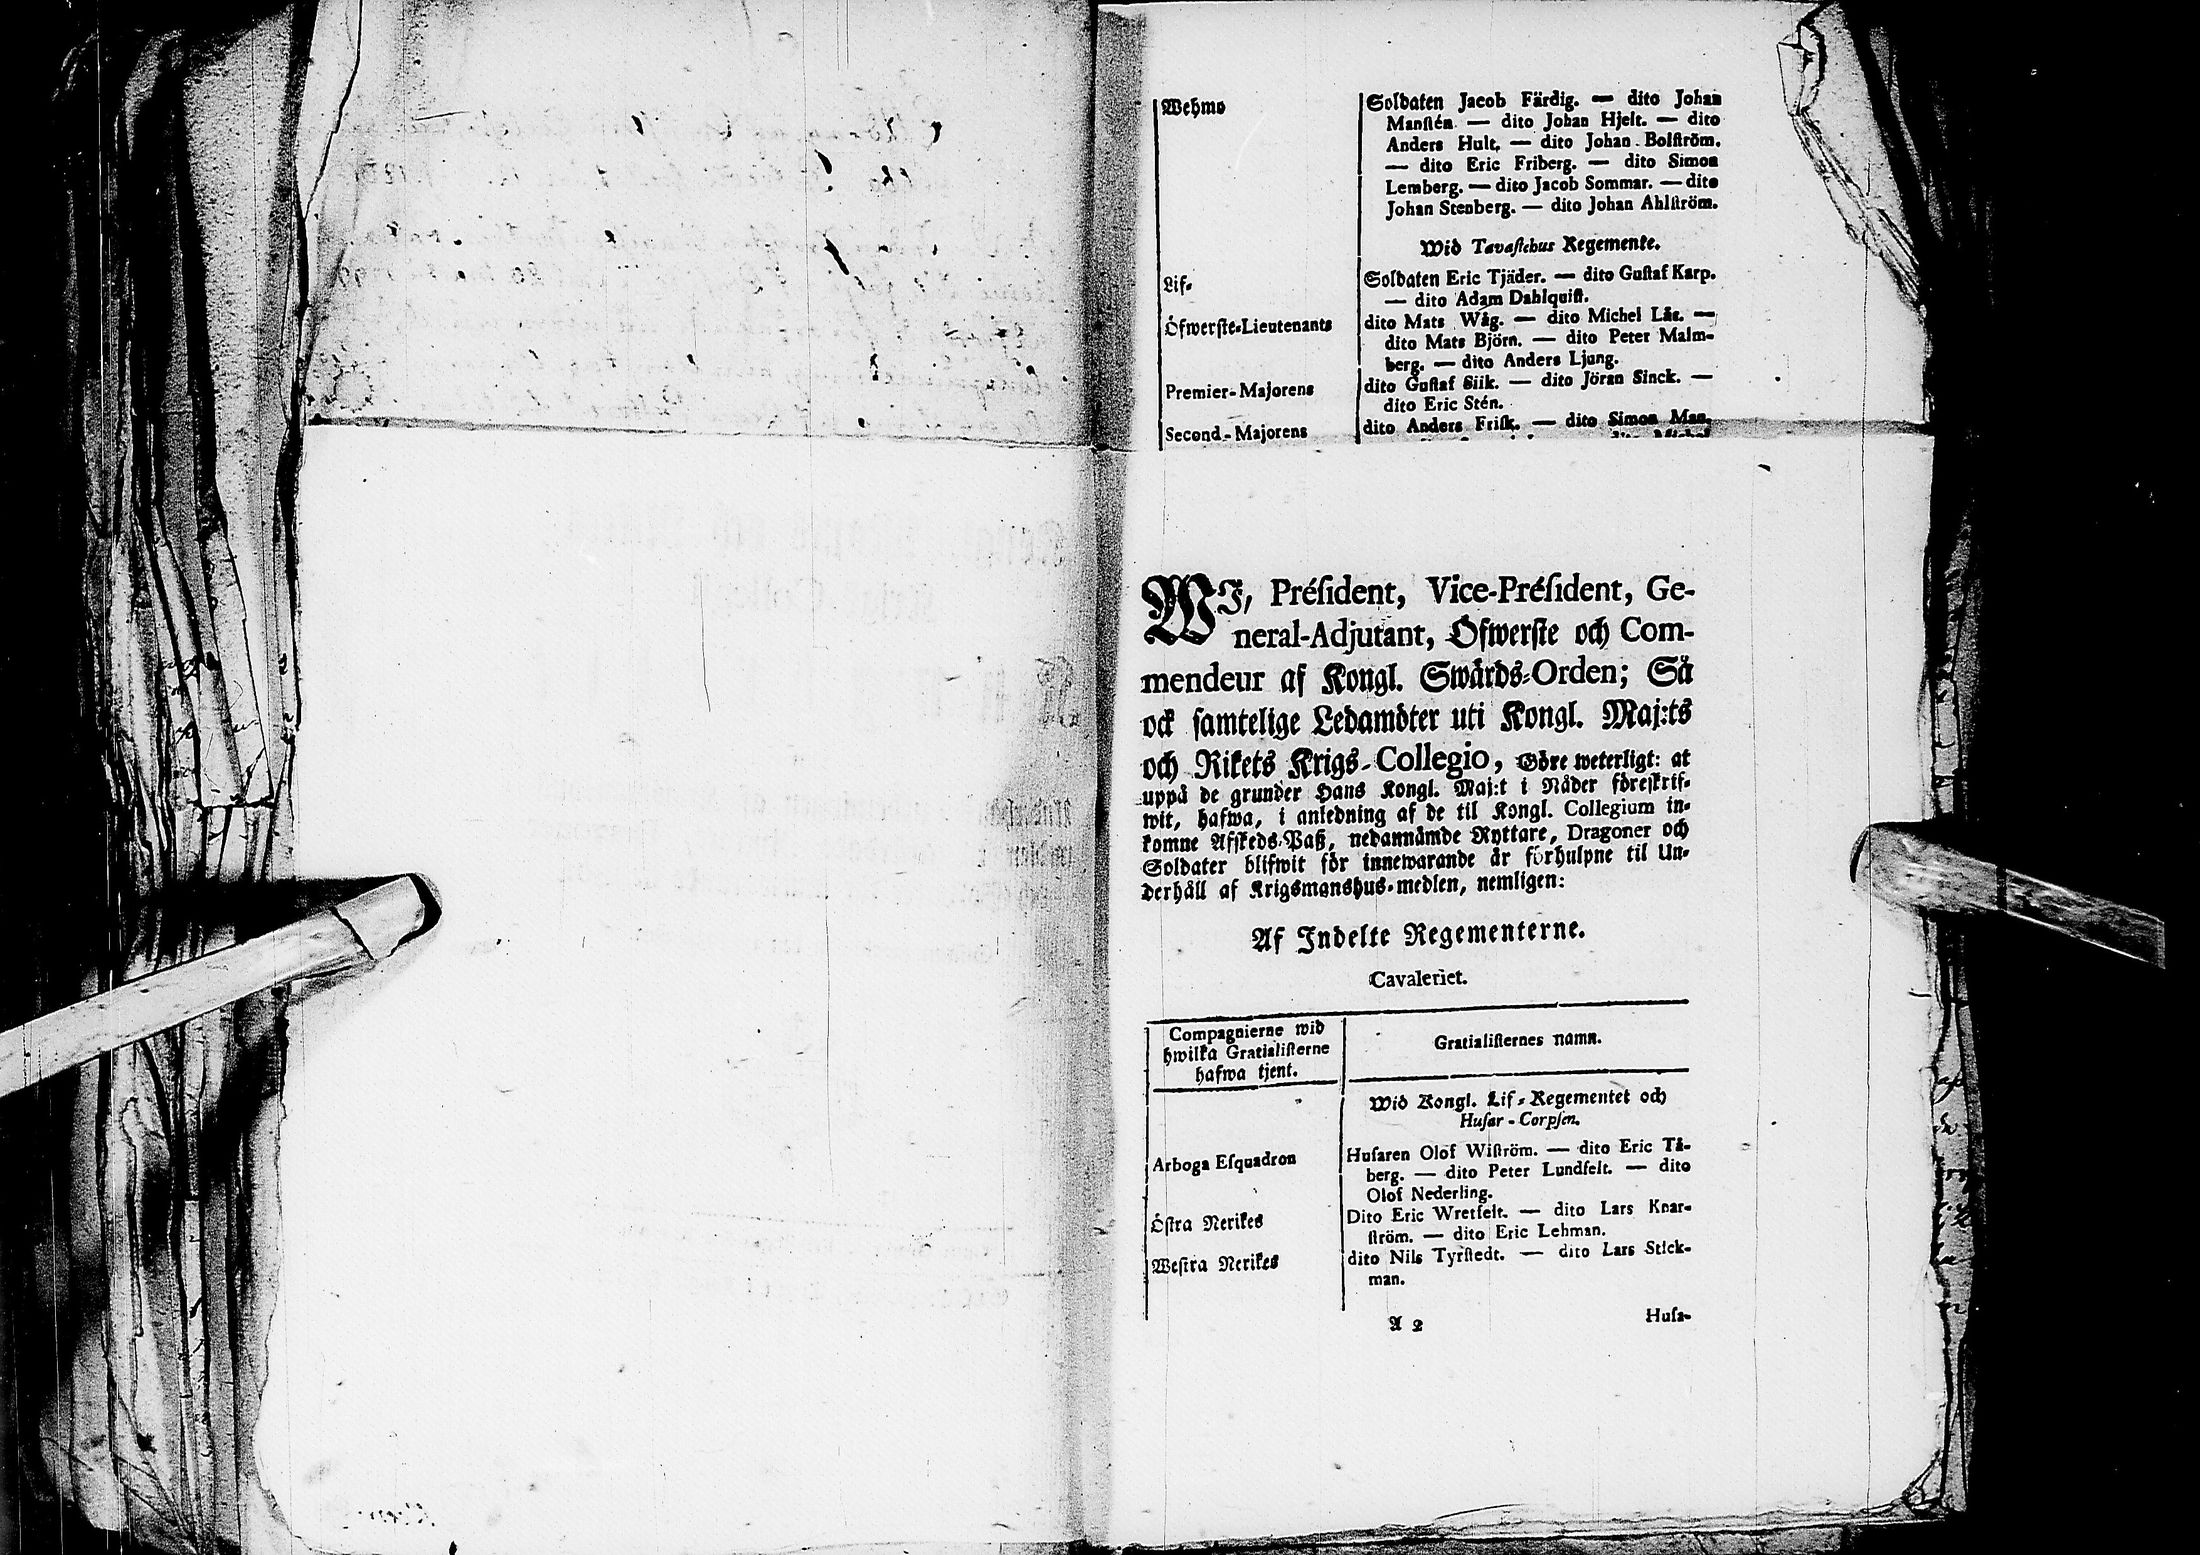 Wehmo
Soldaten Jacob Färdig. — dito Johan
Manstén — dito Johan Hjelt. — dito
Anders Hult. — dito Johan Bolström.
— dito Eric Friberg. — dito Simon
Lemberg. — dito Jacob Sommar. — dito
Johan Stenberg. — dito Johan Ahlström.
Wid Tavastehus Regemente.
Lif-
Soldaten Eric Tjäder. — dito Gustaf Karp.
— dito Adam Dahlquist.
Öfwerste-Lieutenants
dito Mats Wåg. — dito Michel Lås. —
dito Mats Björn. — dito Peter Malm-
berg. — dito Anders Ljung.
Premier-Majorens
dito Gustaf Siik. — dito Jöran Sinck. —
dito Eric Stén.
Second-Majorens
dito Anders Frisk. — dito Simon Man-
WJ, Président, Vice-Président, Ge-
neral-Adjutant, Öfwerste och Com-
mendeur af Kongl. Swärds-Orden; Så
ock samtelige Ledamöter uti Kongl. Maj:ts
och Rikets Krigs-Collegio, Göre weterligt: at
uppå de grunder Hans Kongl. Maj:t i Nåder föreskrif-
wit, hafwa, i anledning af de til Kongl. Collegium in-
komne Afskeds-Paß, nedannämde Ryttare, Dragoner och
Soldater blifwit för innewarande år förhulpne til Un-
derhåll af Krigsmanshus-medlen, nemligen:
Af Indelte Regementerne.
Cavaleriet.
Compagnierne wid
hwilka Gratialisterne
hafwa tjent.
Gratialisternes namn.
Wid Kongl. Lif-Regementet och
Husar-Corpsen.
Arboga Esquadron
Husaren Olof Wiström. — dito Eric Tå-
berg. — dito Peter Lundfelt. — dito
Olof Nederling.
Östra Nerikes
Dito Eric Wretfelt. — dito Lars Knar-
ström. — dito Eric Lehman.
Westra Nerikes
dito Nils Tyrstedt. — dito Lars Stick-
man.
A 2
Husa-